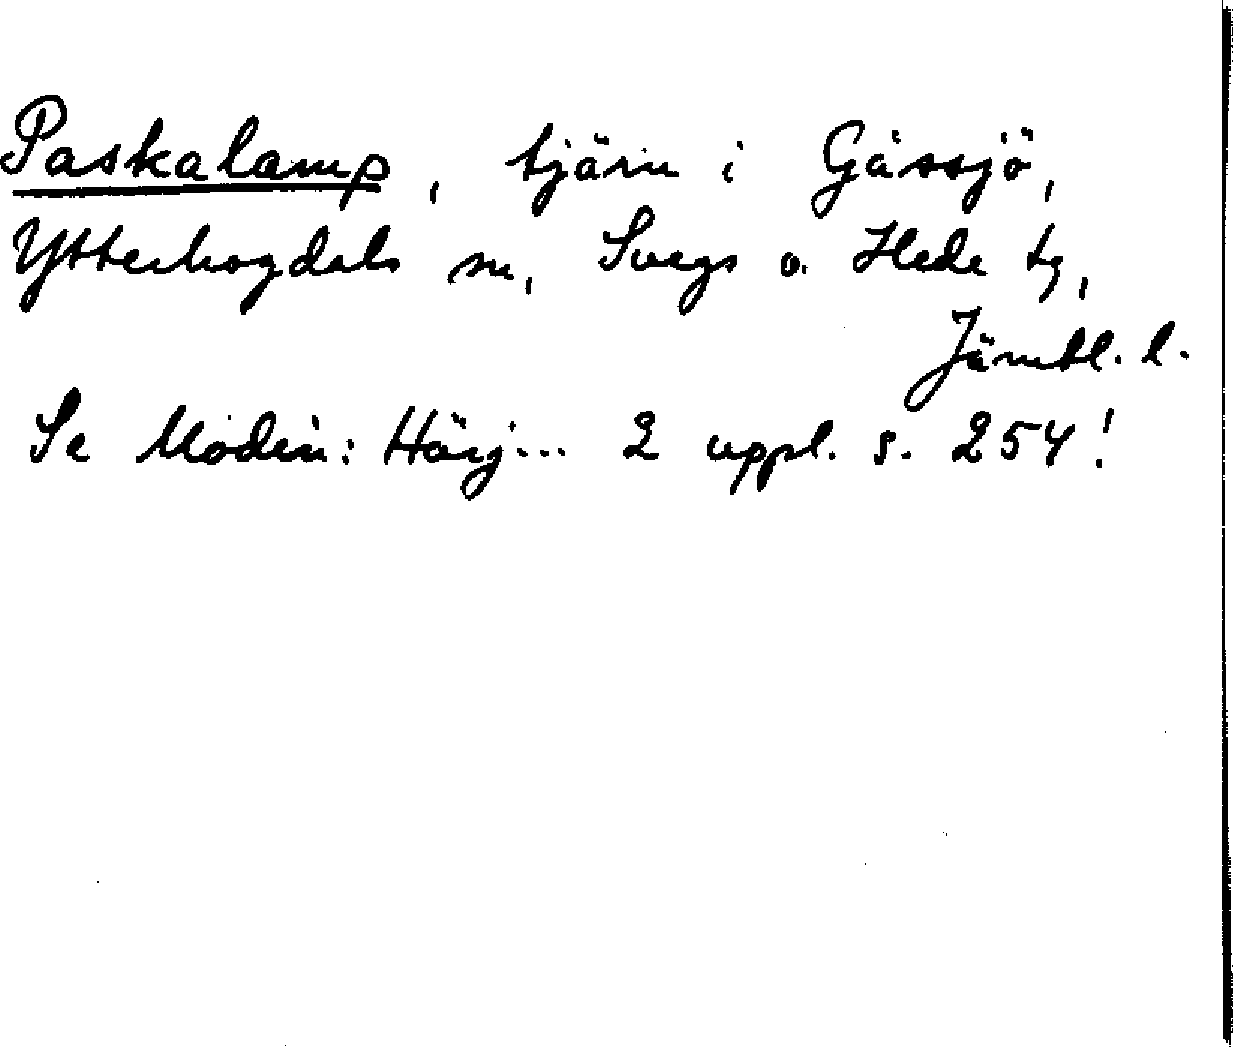 Paskalamp, tjärn i Gåssjö,
Ytterhogdals sn, Svegs o. Hede tg,
Jämtl. l.
Se Modin: Härj... 2 uppl. s. 254!